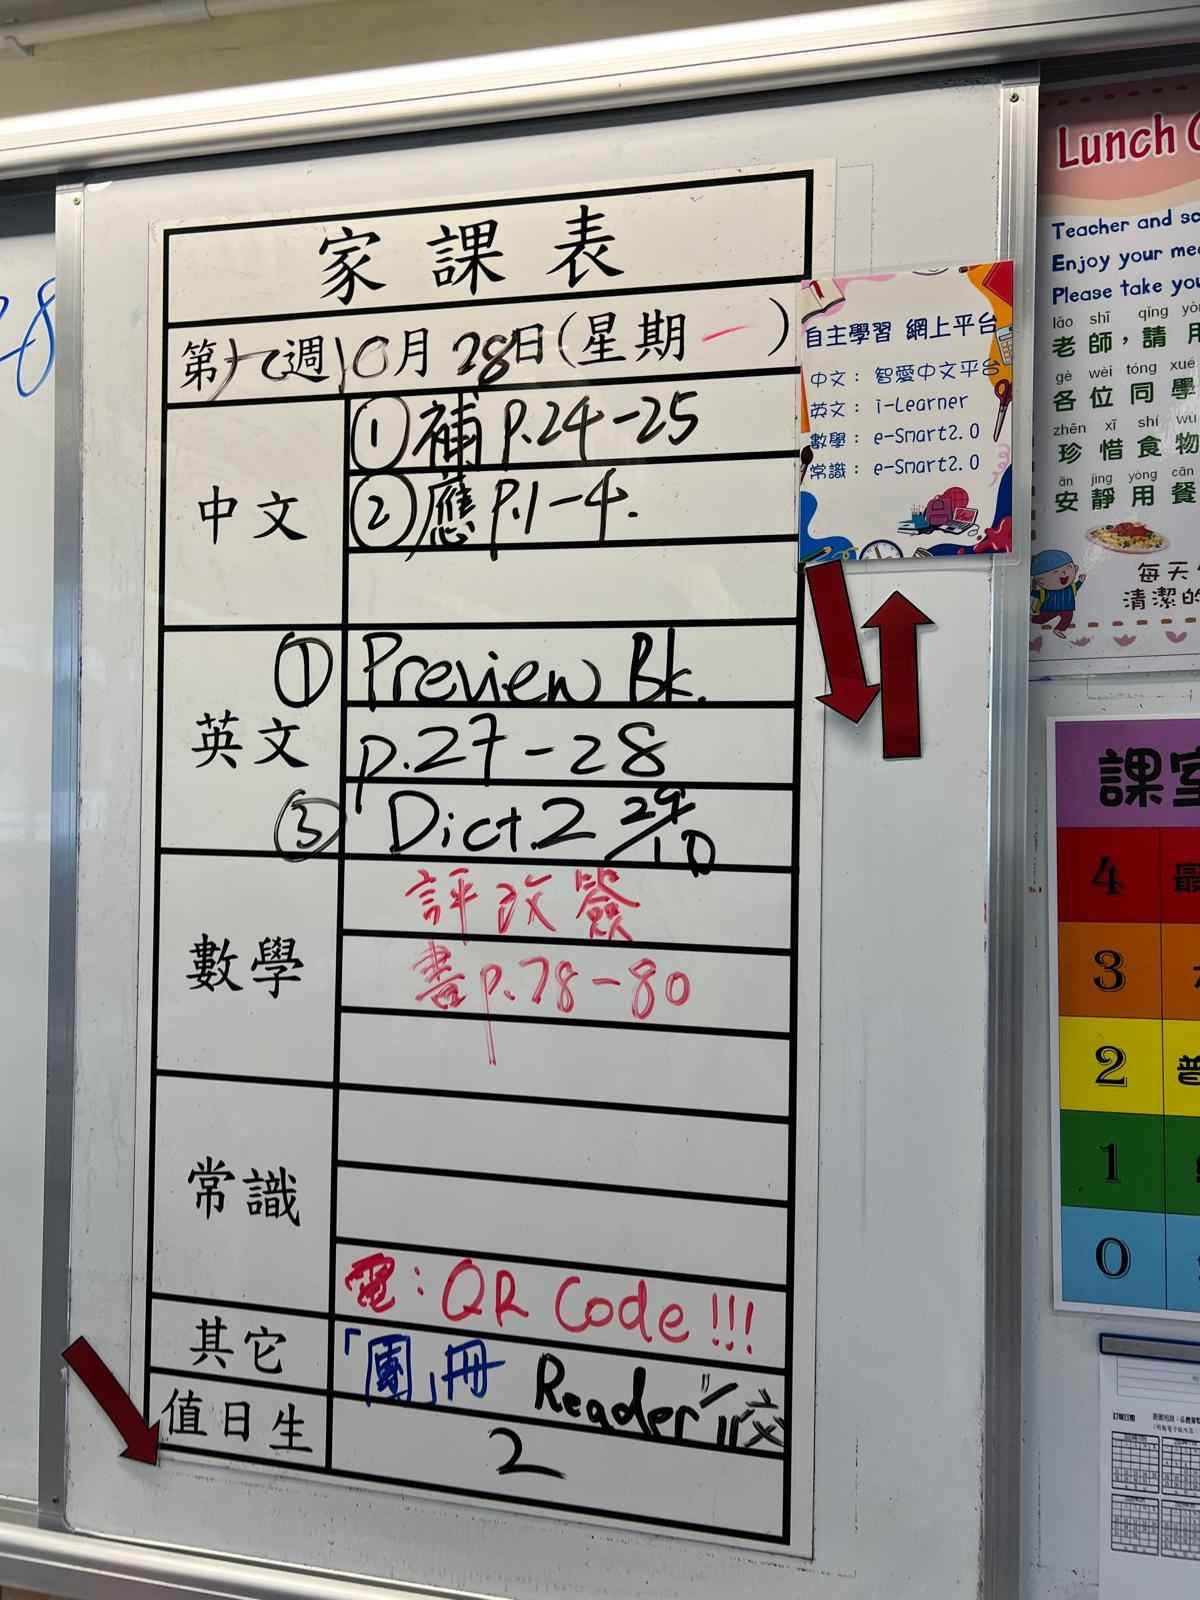 家課表
第九週10月28日(星期一)
中文
①補 p.24-25
②應 p.1-4.
英文
① Preview Bk.
p.27-28
③ Dict.2 29/10
數學
評改簽
書p.78-80
常識
電：QR Code!!!
其它
「團」冊 Reader 1/11交
值日生
2
自主學習 網上平台
中文： 智愛中文平台
英文： i-Learner
數學： e-Smart2.0
常識： e-Smart2.0
Lunch
Teacher and
Enjoy your
Please take
lǎo shī qǐng
老師，請用
gè wèi tóng xué
各位同學
zhēn xī shí wù
珍惜食物
ān jìng yòng cān
安靜用餐
每天
清潔的
課室
4
3
2
1
0
訂報日期
28